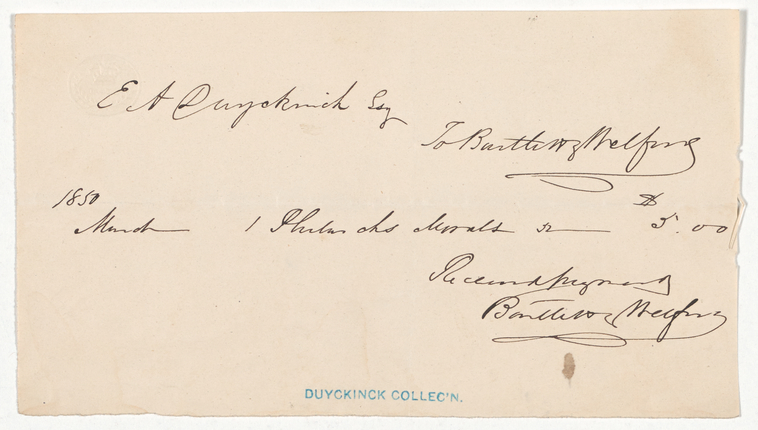 E A Duyckinck Esq
To Bartlett & Welford
1850 $
March 1 Plutarchs Morals 5.00
Received payment
Bartlett & Welford
DUYCKINCK COLLEC'N.